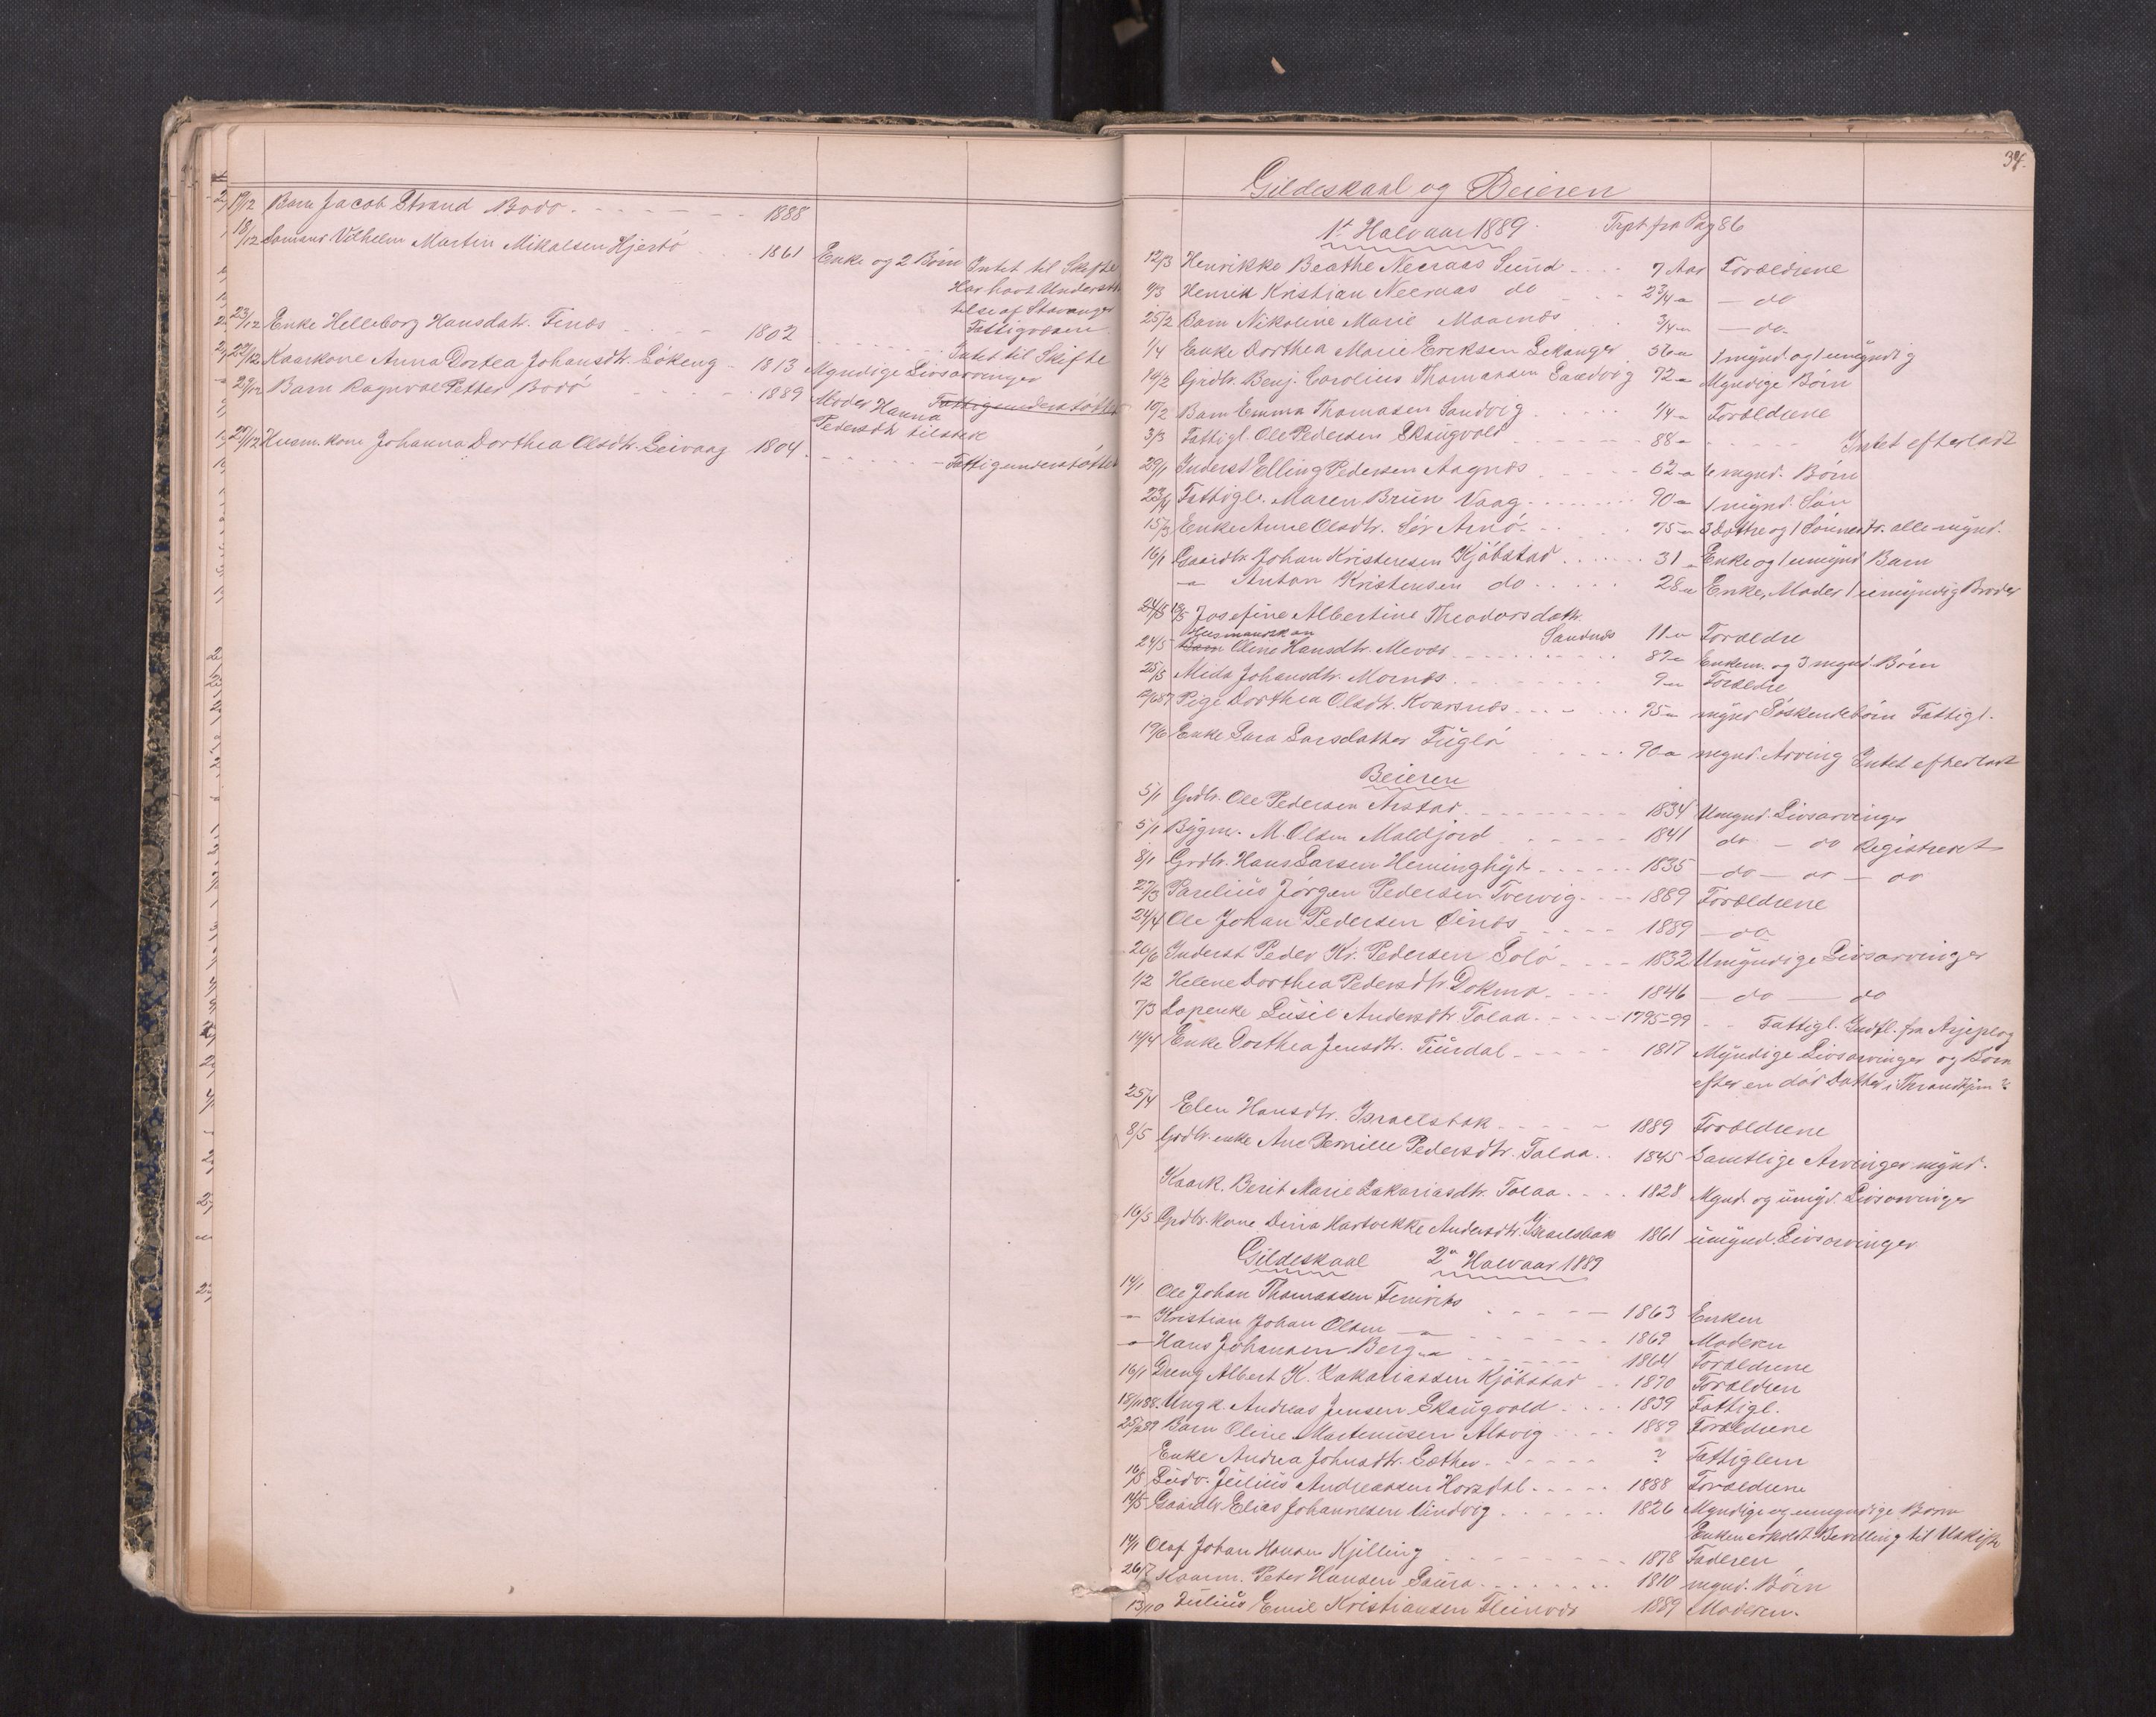 19/12 Barn Jacob Strand Bodø 1888
18/12 Sømand Vilhelm Martin Mikalsen Hjertø 1861 Enke og 2 Børn Intet til Skifte
Har havt Understøt
telse af Stavanger
Fattigvæsen
23/12 Enke Helleborg Hansdatr. Finæs 1802 Intet til Skifte
27/12 Kaarkone Anna Dortea Johansdtr. Løkeng 1813 Myndige Livsarvinger
29/12 Barn Ragnval Petter Bodø 1889 Moder Hanna Fattigunderstøttet
Pedersdtr tilstede
27/12 Husm.kone Johanna Dorthea Olsdtr. Leivaag 1804 Fattigunderstøttet
37.
Gildeskaal og Beieren
1ste Halvaar 1889. Trpt fra Pag 86
12/3 Henrikke Beathe Neeraas Sund 7 Aar Forældrene
9/3 Henrik Kristian Neeraas do 2 3/4 " — do
25/2 Barn Nikoline Marie Maarnæs 3/4 " — do
1/4 Enke Dorthea Marie Eriksen Lekanger 56 " 1 mynd. og 1 umyndig
14/2 Grdbr. Benj. Carolius Thomassen Sandvig 72 " Myndige Børn
10/2 Barn Emma Thomasen Sandvig 1/4 " Forældrene
3/3 Fattigl. Ole Pedersen Skaugvold 88 " Intet efterladt
29/1 Inderst Elling Pedersen Aagnæs 62 " 6 mynd. Børn
23/4 Fattigl. Maren Brun Vaag 90 " 1 mynd. Søn
15/3 Enke Anne Olsdtr. Sør Arnø 75 " 3 Døttre og 1 Sønnedtr. alle mynd.
16/1 Gaardbr. Johan Kristensen Kjøbstad 31 " Enke og 1 umynd Barn
— " Anton Kristensen do 28 " Enke, Moder 1 umyndig Broder
24/5 13/5 Josefine Albertine Theodorsdatr.
Sandnæs 11 " Forældre
Husmandskon
24/5 Barn Oline Hansdtr. Mevær 87 " Enkem. og 3 mynd. Børn
25/5 Mida Johansdtr. Mornæs 9 " Forældre
87 Pige Dorthea Olsdtr. Kvarsnæs 75 " mynd Søskendebørn Fattigl.
19/6 Enke Sara Larsdatter Fuglø 90 " mynd. Arving Intet efterladt
Beieren
5/1 Grdbr. Ole Pedersen Arstad 1834 Umynd. Livsarvinger
5/1 Bygm. M. Olsen Moldjord 1841 do — do Registreret
8/1 Grdbr. Hans Larsen Heminghyt 1835 — do — do — do
27/3 Parelius Jørgen Pedersen Tvervig 1889 Forældrene
24/4 Ole Johan Pedersen Øinæs 1889 — do
26/6 Inderst Peder Kr. Pedersen Solø 1832 Umyndige Livsarvinger
1/2 Helene Dorthea Pedersdtr Dokmo 1846 — do — do
7/3 Lapenke Susil Andersdtr. Tolaa 1795-99 Fattigl. Indfl. fra Arjeplog
14/4 Enke Dorthea Jensdtr. Tuurdal 1817 Myndige Livsarvinger og Børn
efter en død Datter i Throndhjem
25/4 Elen Hansdtr. Israelsbak 1889 Forældrene
8/5 Grdbr. enke Ane Pernille Pedersdtr. Tolaa 1845 Samtlige Arvinger mynd.
Kaark. Berit Marie Zakariasdtr. Tolaa 1828 Mynd. og umynd. Livsarvinger
16/5 Grdbr. kone Dina Hartvikke Andersdtr. Israelsbak 1861 umynd. Livsarvinger
Gildeskaal 2det Halvaar 1889
14/1 Ole Johan Thomassen 1863 Enken
— " Kristian Johan Olsen — " 1869 Moderen
— " Hans Johansen Berg " 1864 Forældrene
16/1 Dreng Albert K. Zakariassen Kjøbstad 1870 Forældren
18/11 88. Ungk. Andreas Jensen Skaugvold 1839 Fattigl.
25/2 89 Barn Oline Martinusen Alsvig 1889 Forældrene
Enke Andrea Johnsdtr. Sæther ? Fattiglem
16/8 Ludv. Julius Andreassen Horsdal 1888 Forældrene
14/5 Gaardbr Elias Johannesen Vindvig 1826 Myndige og umyndige Børn
Enken erholdt Bevilling til Uskifte
14/1 Olaf Johan Hansen Kjelling 1878 Faderen
26/7 Kaarm. Peter Hansen Saura 1810 mynd. Børn
13/10 Julius Emil Kristiansen Fleinvær 1889 Moderen.